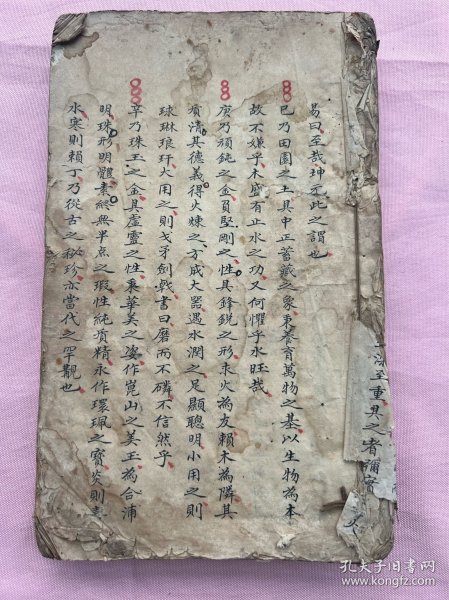 易曰至哉坤元此之謂也
巳乃田園之土具中正蓄藏之象秉養育萬物之基以生物為本
故不嫌乎木盛有止水之功又何懼乎水旺哉
庚乃頑鈍之金負堅剛之性具鋒銳之形求火為友賴木為隣其
質清其德義得火煉之方成大器遇水潤之足顯聰明小用之則
球琳琅玕大用之則戈矛劍戟書曰磨而不磷不信然乎
辛乃珠玉之金具虛靈之性秉華美之姿作崑山之美玉為合浦
明珠形明體素終無半点之瑕性純質精永作環珮之寶炎則喜
水寒則賴丁乃從古之秘珍亦當代之罕覯也
至重具之者彌
孔夫子旧书网
www.kongfz.com